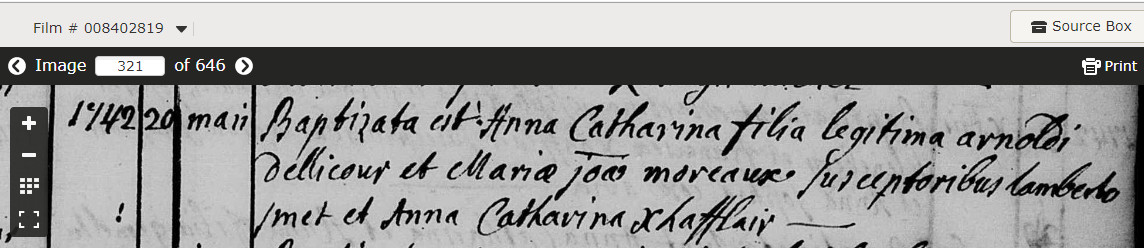 Film # 008402819
Source Box
Image 321 of 646
Print
1742 20 maii Baptizata est Anna Catharina filia legitima arnoldi
Dellicour et Mariæ joæ moreaux susceptoribus lamberto
smet et Anna Catharina xhafflair